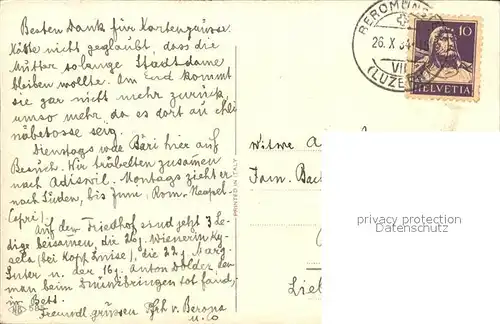 Besten Dank für Kartengrüsse.
Hätte nicht geglaubt, dass die
Mutter solange Stadtdame
bleiben wollte. Am End kommt
sie gar nicht mehr zurück,
umso mehr, da es dort au chli
seig.
Dienstags wäre Bäri hier auf
Besuch. Wir trabelten zusammen
nach Adiswil. Montags zieht er
nach Süden, bis Juni (Rom-Neapel-
Capri).
Auf dem Friedhof sind jetzt 3 Le-
dige beisammen, die 26j. Wienerin
(bei Kopf Luise), die 22j. Marg.
Suter u. der 16j. Anton Dolder den
man beim tot fand,
im Bett.
Freundl. grüssen Pfrh v. Berona
u. Co
PRINTED IN ITALY
BEROMÜNSTER
26.X.34
VII
(LUZERN)
10
HELVETIA
Witwe A
Fam. Bac
Lie
privacy protection
watermark